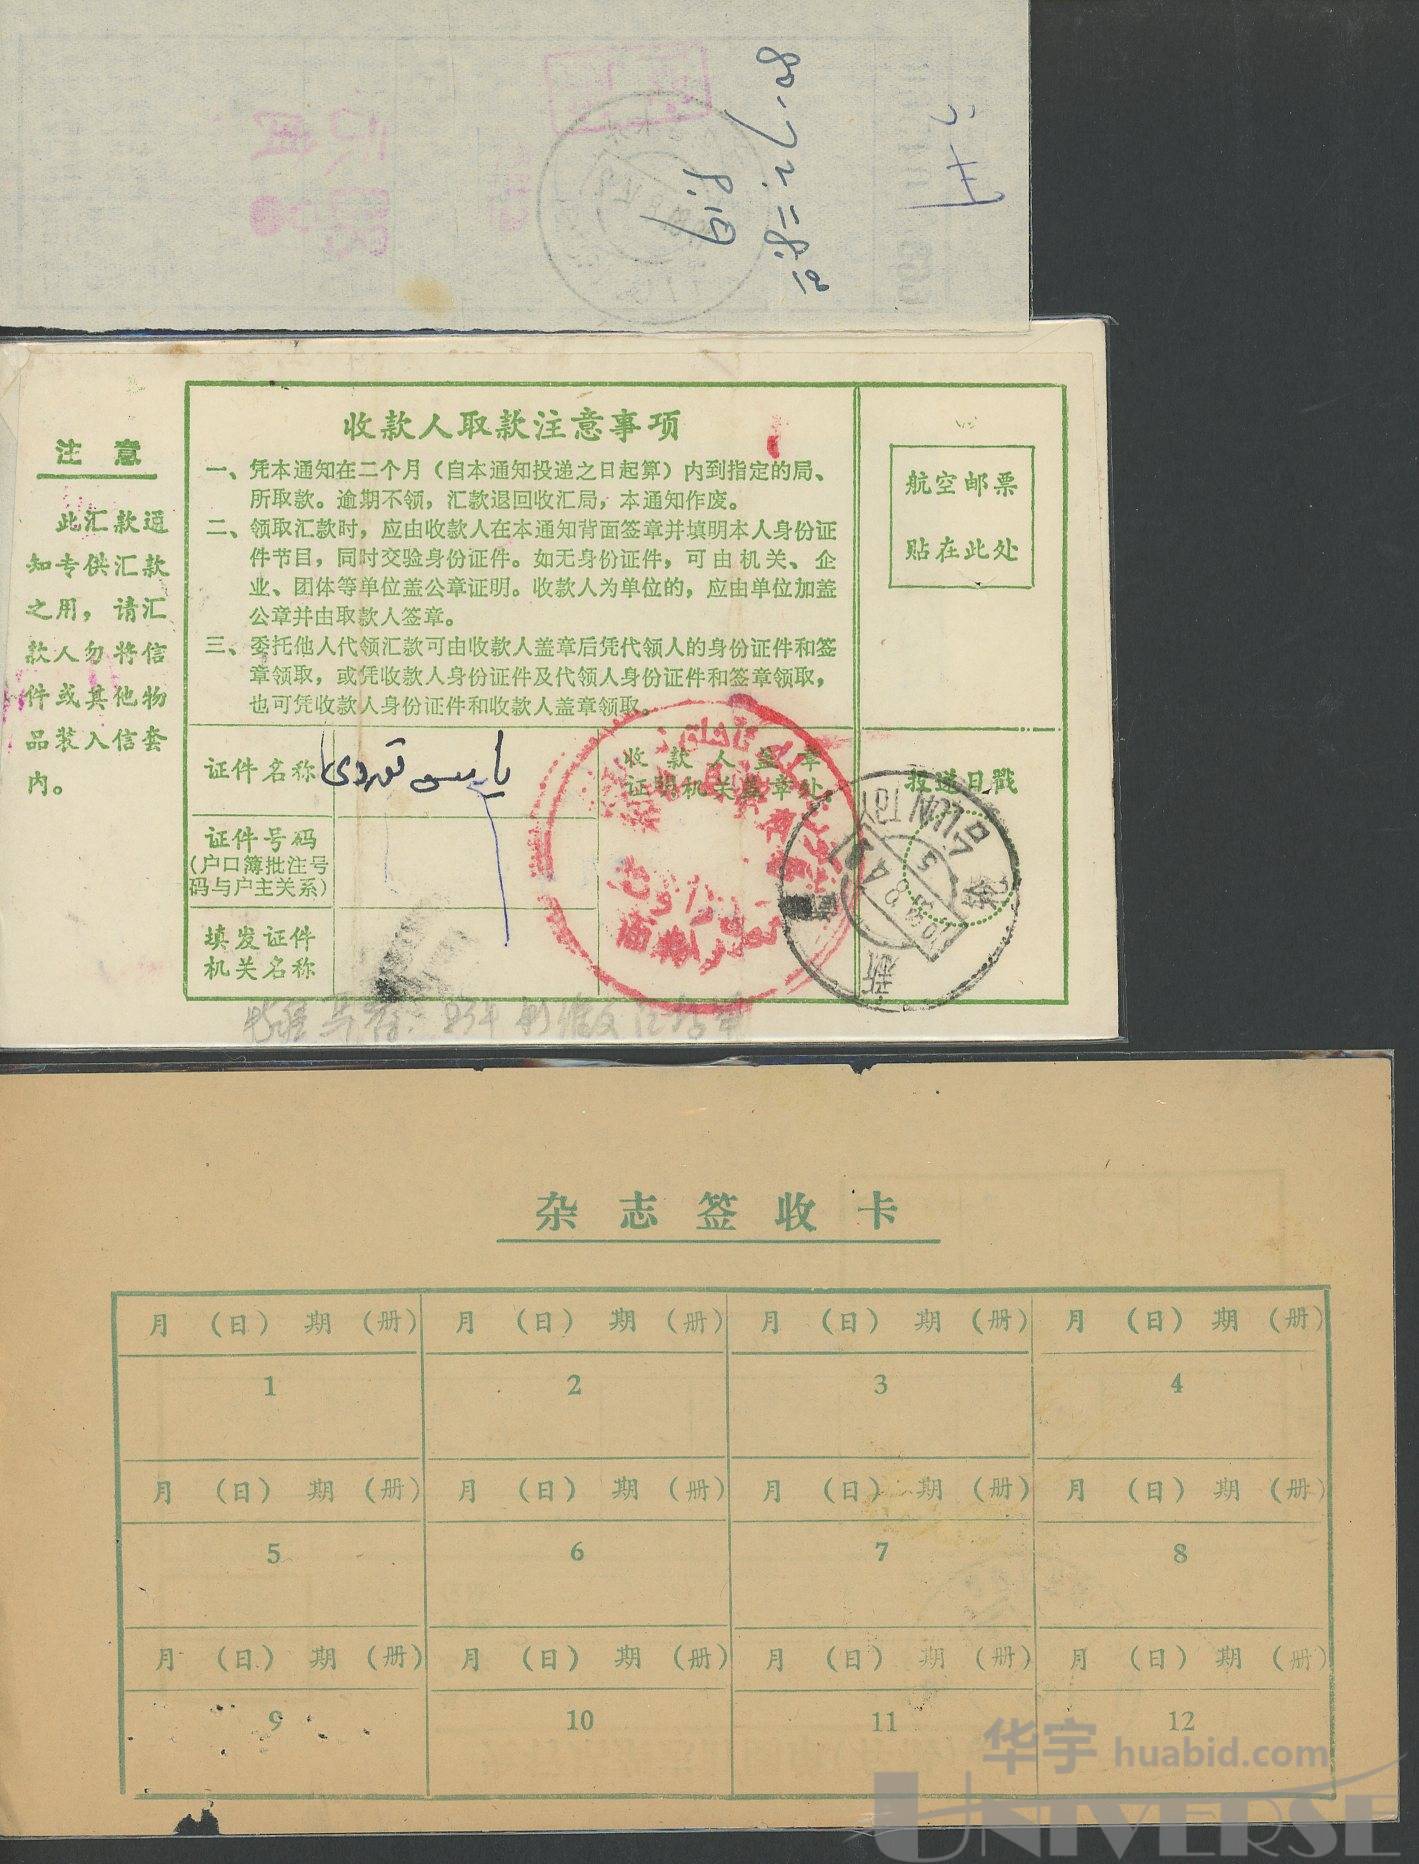 8.19
收款人取款注意事项
一、凭本通知在二个月（自本通知投递之日起算）内到指定的局、
所取款。逾期不领，汇款退回收汇局，本通知作废。
二、领取汇款时，应由收款人在本通知背面签章并填明本人身份证
件节目，同时交验身份证件。如无身份证件，可由机关、企
业、团体等单位盖公章证明。收款人为单位的，应由单位加盖
公章并由取款人签章。
三、委托他人代领汇款可由收款人盖章后凭代领人的身份证件和签
章领取，或凭收款人身份证件及代领人身份证件和签章领取，
也可凭收款人身份证件和收款人盖章领取。
注 意
此汇款通
知专供汇款
之用，请汇
款人勿将信
件或其他物
品装入信套
内。
航空邮票
贴在此处
证件名称
收款人盖章
证明机关盖章处
投递日戳
证件号码
(户口簿批注号
码与户主关系)
填发证件
机关名称
杂志签收卡
月 (日) 期 (册) 月 (日) 期 (册) 月 (日) 期 (册) 月 (日) 期 (册)
1 2 3 4
月 (日) 期 (册) 月 (日) 期 (册) 月 (日) 期 (册) 月 (日) 期 (册)
5 6 7 8
月 (日) 期 (册) 月 (日) 期 (册) 月 (日) 期 (册) 月 (日) 期 (册)
9 10 11 12
华宇 huabid.com
UNIVERSE